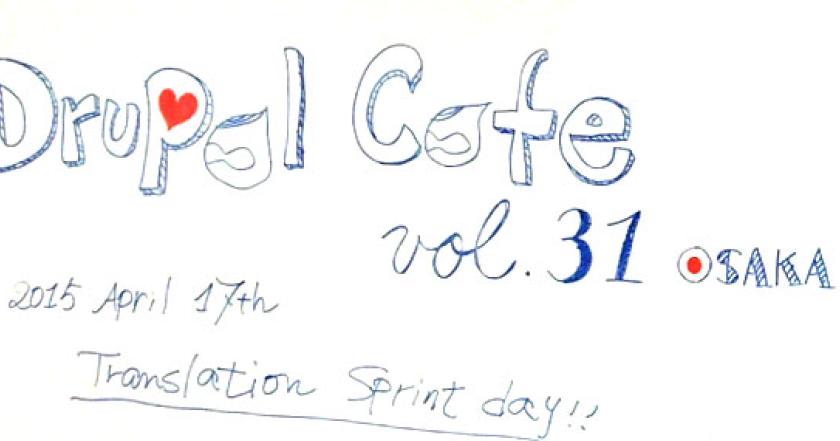 Drupal Cafe
vol. 31 OSAKA
2015 April 17th
Translation Sprint day!!